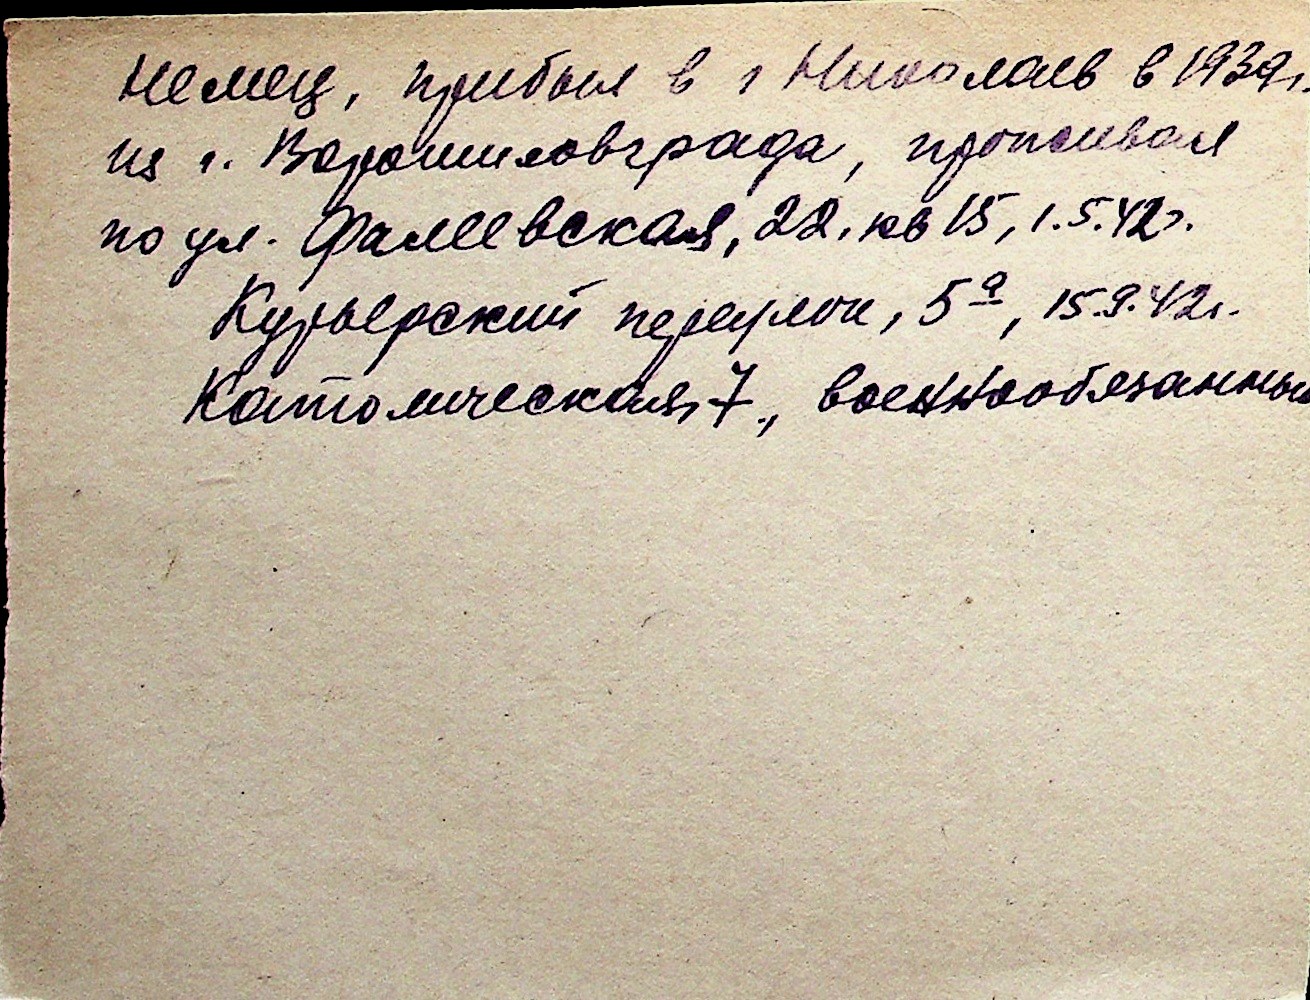 немец, прибыл в г Николаев в 1939г.
из г. Ворошиловграда, проживал
по ул. Фалеевская, 22, кв 15, 1.5.42г.
Курьерский переулок, 5а, 15.9.42г.
Католическая, 7., военнообязанный